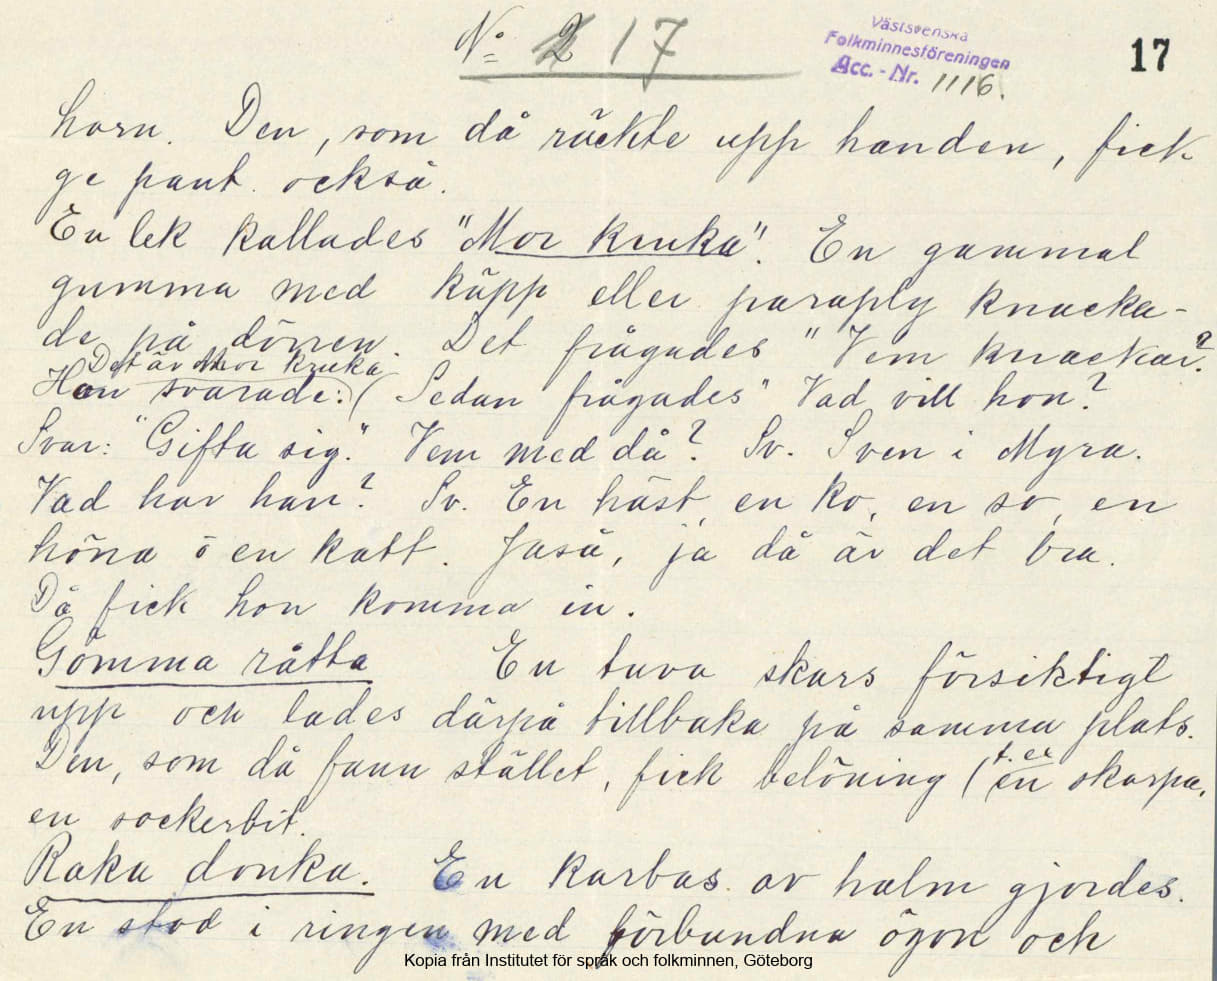 No 2 17
Västsvenska
Folkminnesföreningen
Acc. - Nr. 1116.
17
horn. Den, som då räckte upp handen, fick
ge pant också.
En lek kallades "Mor kruka". En gammal
gumma med käpp eller paraply knacka-
de på dörren. Det frågades "Vem knackar?
Det är Mor kruka
Hon svarade: ( Sedan frågades "Vad vill hon?
Svar: "Gifta sig." Vem med då? Sv. Sven i Myra.
Vad har han? Sv. En häst, en ko, en so, en
höna o en katt. Jaså, ja då är det bra.
Då fick hon komma in.
Gömma råtta En tuva skars försiktigt
upp och lades därpå tillbaka på samma plats.
Den, som då fann stället, fick belöning (t. ex en skorpa,
en sockerbit.
Raka donka. En karbas av halm gjordes.
En stod i ringen med förbundna ögon och
Kopia från Institutet för språk och folkminnen, Göteborg